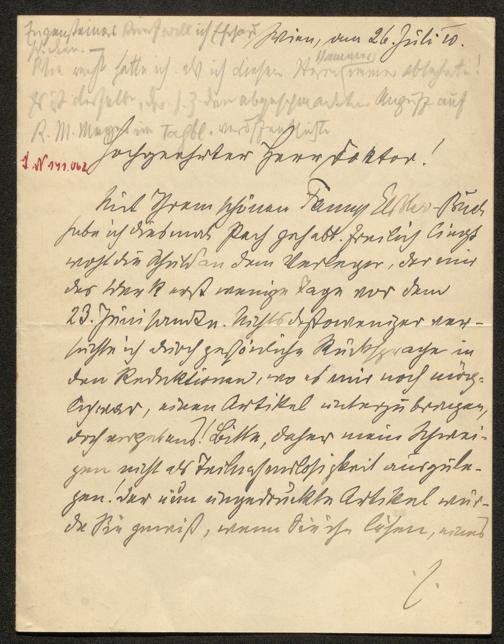 Wien, am 26. Juli 10.
Wie recht hatte ich, als ich diesen Herrn immer ablehnte!
Es ist derselbe, der s. Z. den abgeschmackten Angriff auf
R. M. Meyer im Tagbl. veröffentlichte
I. N 141.062
Hochgeehrter Herr Doktor!
Mit Ihrem schönen Fanny Elßler-Buch
habe ich diesmal Pech gehabt. Freilich liegt
wohl die Schuld an dem Verleger, der mir
das Werk erst wenige Tage vor dem
23. Juni sandte. Nichtsdestoweniger ver-
suchte ich durch persönliche Rücksprache in
den Redaktionen, wo es mir noch mög-
lich war, einen Artikel unterzubringen,
doch vergebens! Bitte, daher mein Schwei-
gen nicht als Teilnahmslosigkeit auszule-
gen! Der nun ungedruckte Artikel wür-
de Sie gewiß, wenn Sie ihn läsen, eines